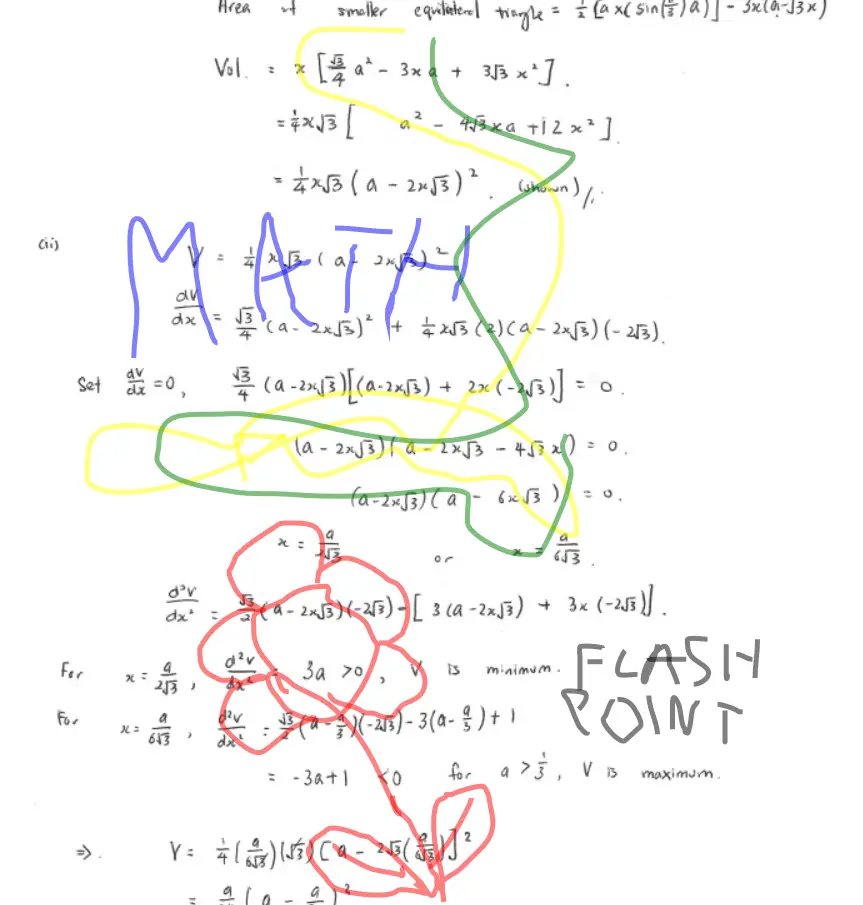 Area of smaller equilateral triangle = 1/2 [a x( sin(π/3) a)] - 3x(a-√3x)
Vol. = x [ √3/4 a² - 3xa + 3√3 x² ].
= 1/4 x√3 [ a² - 4√3xa + 12x² ].
= 1/4 x√3 ( a - 2x√3 )². (shown) //.
MATH
(ii) V = 1/4 x√3 ( a - 2x√3 )²
dV/dx = √3/4 (a - 2x√3)² + 1/4 x√3 (2)(a - 2x√3)(-2√3).
Set dV/dx = 0, √3/4 (a-2x√3)[(a-2x√3) + 2x(-2√3)] = 0.
(a - 2x√3)(a - 2x√3 - 4√3x) = 0.
(a-2x√3)(a - 6x√3) = 0.
x = a/2√3 or x = a/6√3.
d²V/dx² = √3/2 (a - 2x√3)(-2√3) - [ 3(a-2x√3) + 3x(-2√3)].
For x = a/2√3, d²V/dx² = 3a >0, V is minimum.
FLASH
POINT
For x = a/6√3, d²V/dx² = √3/2 (a - a/3)(-2√3) - 3(a - a/3) + 1
= -3a+1 <0 for a > 1/3, V is maximum.
⇒. V = 1/4 (a/6√3)(√3)[a - 2√3(a/6√3)]²